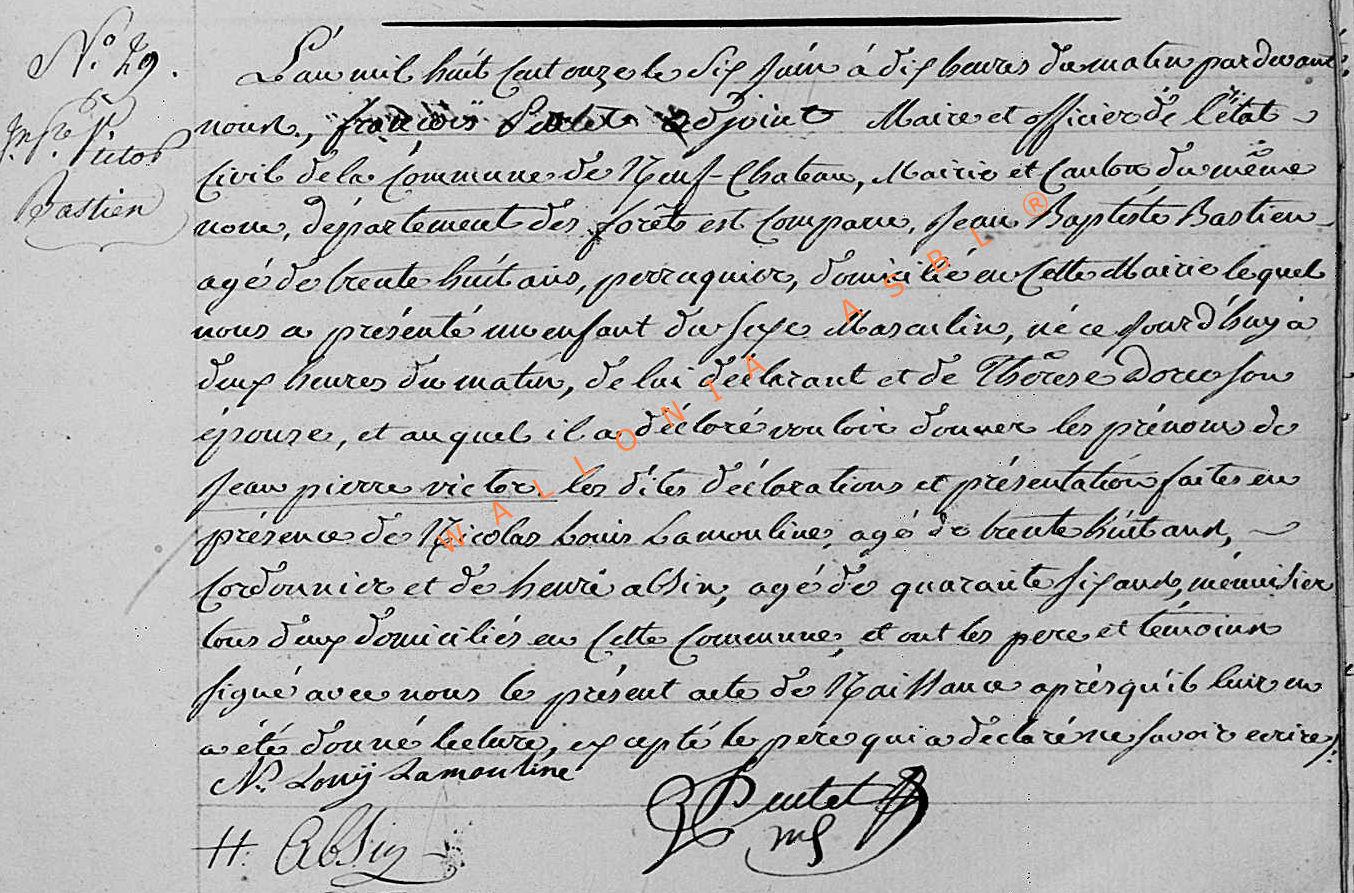 N.º 29.
Jn. Pre. Victor
Bastien
L'an mil huit cent onze le six Juin à dix heures du matin pardevant
nous, françois Pentet adjoint Maire et officier de l'état
Civil de la Commune de Neuf-Chateau, Mairie et Canton du même
nom, département des forêts est comparu, Jean Baptiste Bastien
agé de trente huit ans, perruquier, domicilié en Cette Mairie lequel
nous a présenté un enfant du sexe Masculin, né ce jourd'huy à
deux heures du matin, de lui déclarant et de Thérèse Doru son
épouse, et auquel il a déclaré vouloir donner les prénoms de
Jean pierre victor les dites déclarations et présentation faites en
présence de Nicolas Louis Lamouline, agé de trente huit ans,
Cordonnier et de henri absin, agé de quarante six ans, menuisier
tous deux domiciliés en Cette Commune, et ont les pere et témoins
signé avec nous le présent acte de Naissance après qu'il leur en
a été donné lecture, excepté le père qui a déclaré ne savoir ecrire.
N. Louij Lamouline
Pentet
H. Absin
WALLONIA ASBL ®